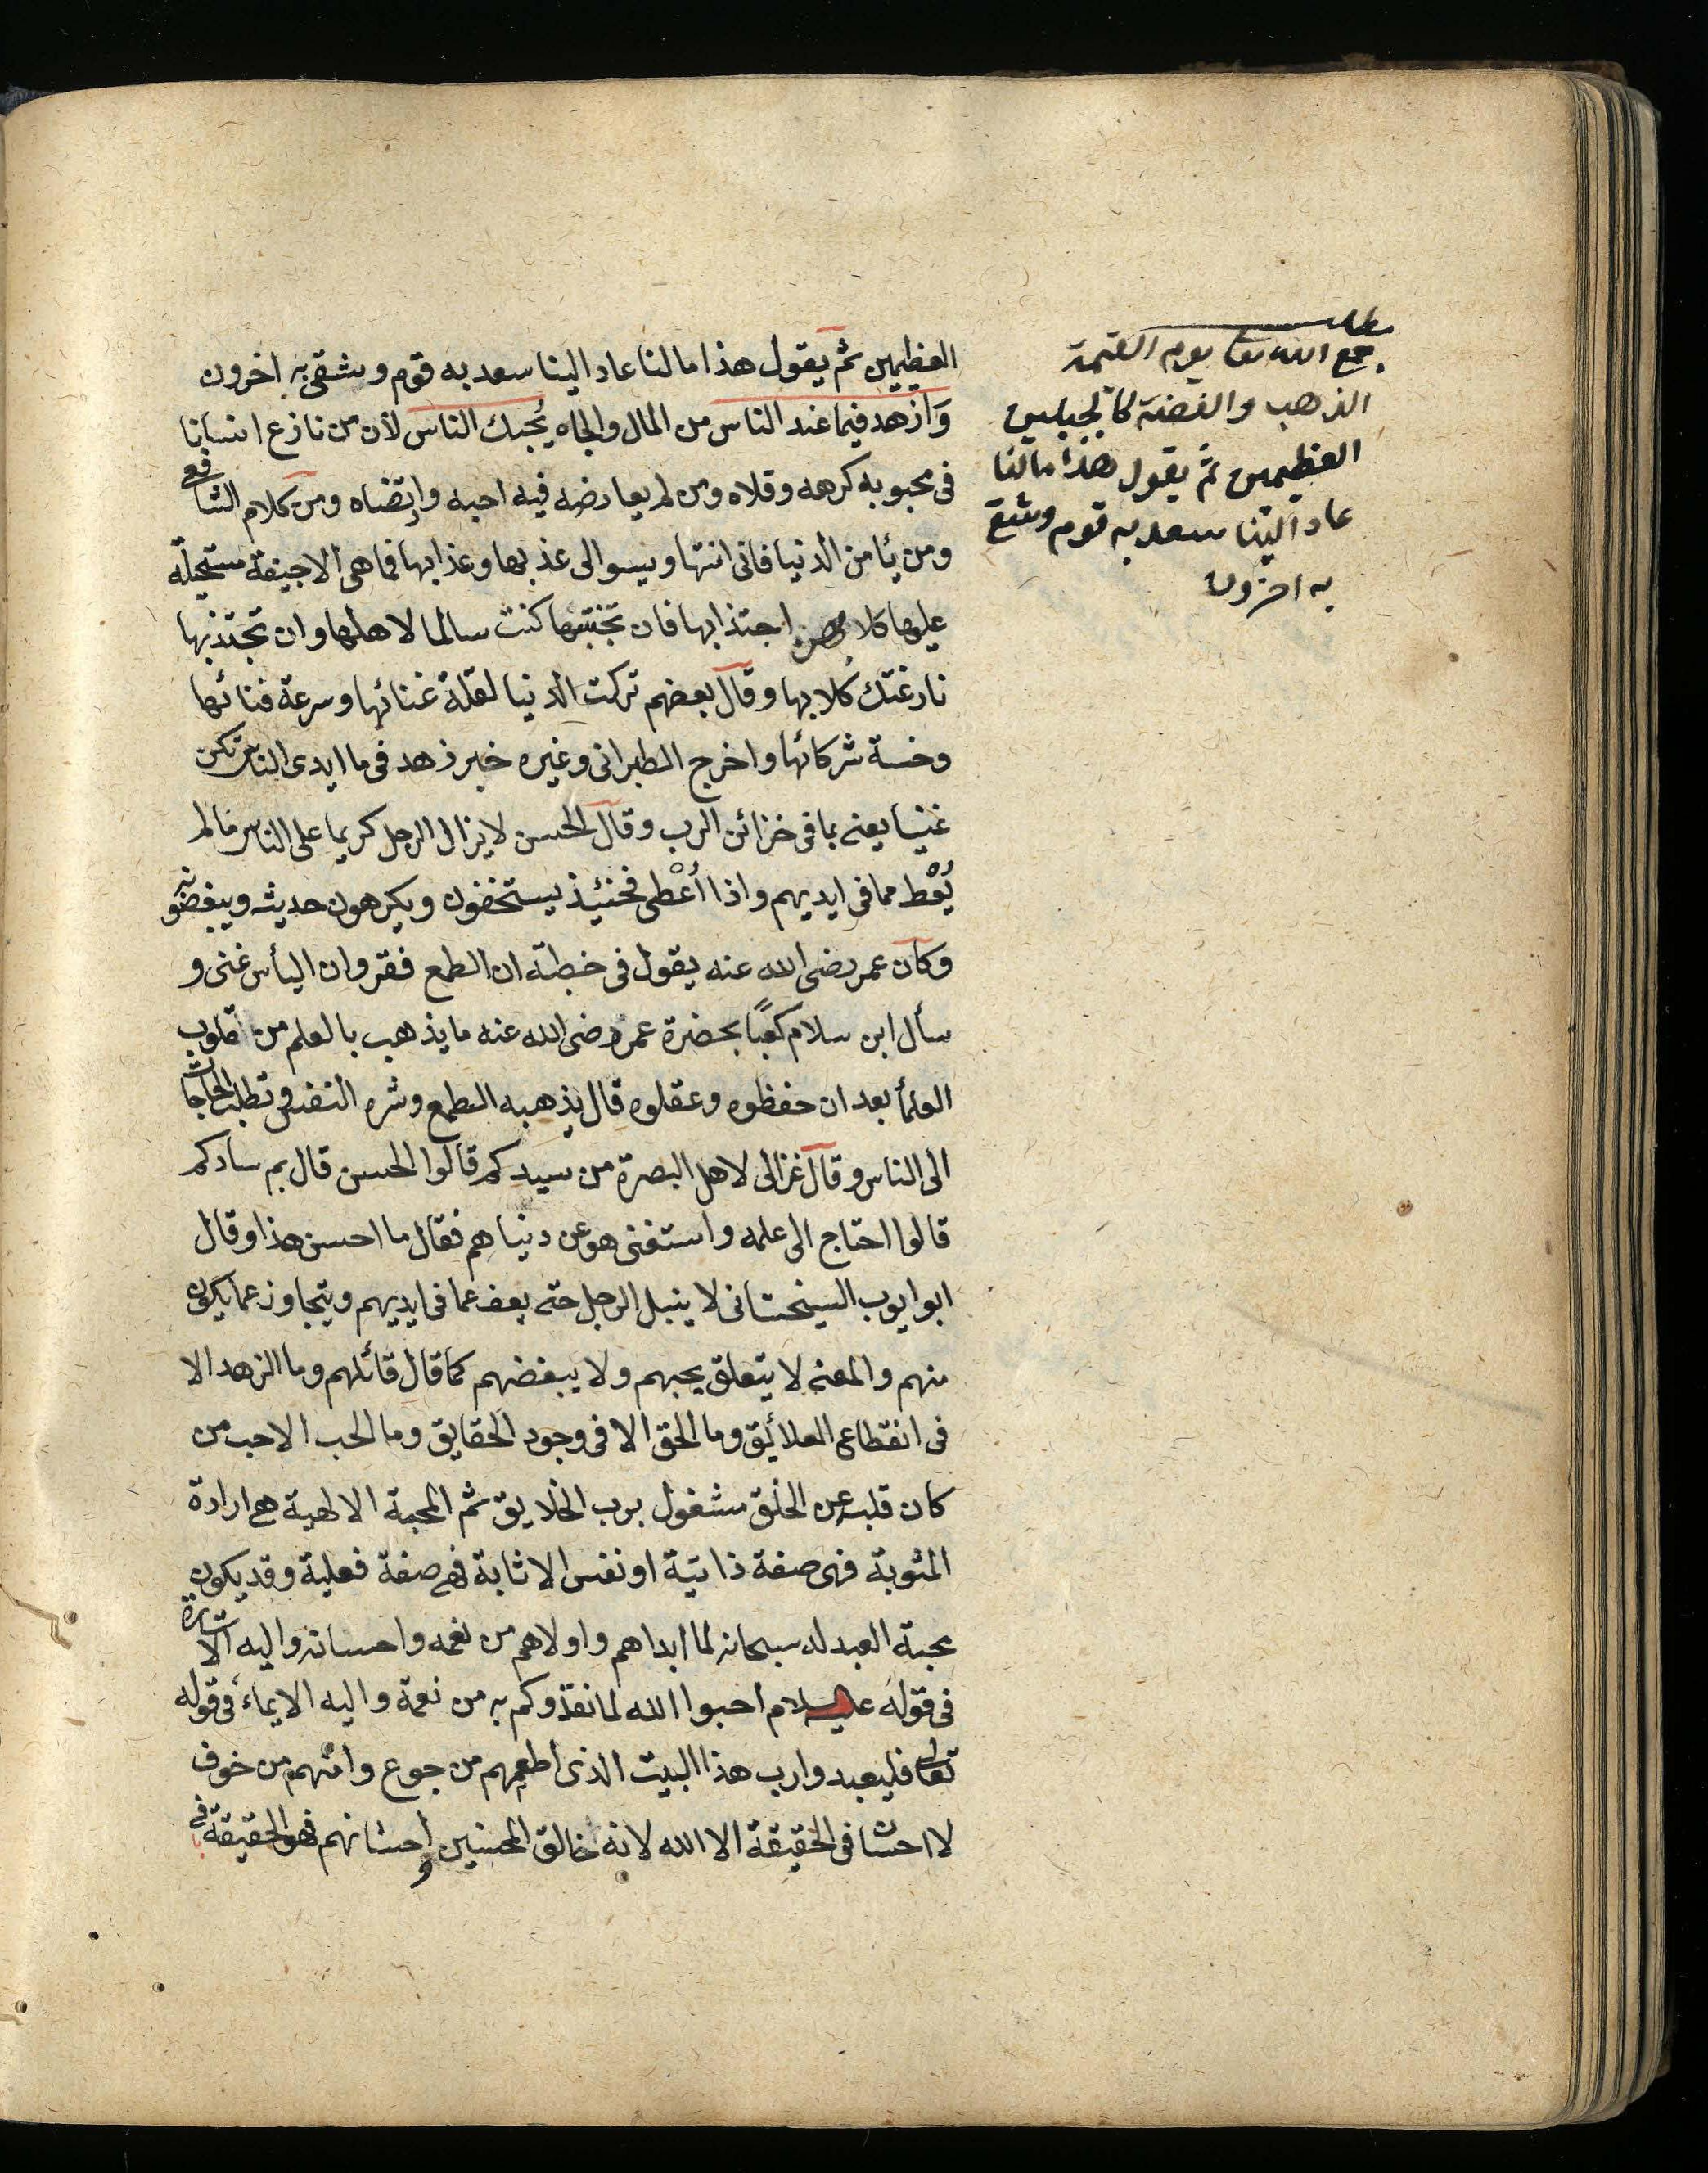 العظيمين ثم يقول هذا مالنا عاد الينا سعد به قوم وشقى به اخرون
وَازهد فيما عند الناس من المال والجاه يُحبك الناس لأن من نازع انسانا
فى محبوبه كرهه وقلاه ومن لم يعارضه فيه احبه وارتضاه ومن كلام الشافعى
ومن يأمن الدنيا فانى انتها وبسوالى عذبها وعذابها فما هى الا جيفة مستحيلة
عليها كلاب همهن اجتذابها فان تجتنبها كنت سالما لاهلها وان تجتذبها
نازعتك كُلابها وقال بعضهم تركت الدنيا لقلة غنائها وسرعة فنائها
وخسة شركائها واخرج الطبرانى وغيره خبر ازهد فى ما ايدى الناس تكن
غنيا يعنى بما فى خزائن الرب وقال الحسن لا يزال الرجل كريما على الناس مالم
يُعْط مما فى ايديهم واذا اُعْطى فحنئيذ يستخفون ويكرهون حديثه ويبغضونه
وكان عمر رضى الله عنه يقول فى خطبته ان الطمع فقر وان اليأس غنى و
سأل ابن سلام كعبًا بحضرة عمر رضى الله عنه ما يذهب بالعلم من قلوب
العلمأ بعد ان حفظوه وعقلوه قال يذهبه الطمع وشره النفس وتطلب الحاجات
الى الناس وقال غزالى لاهل البصرة من سيدكم قالوا الحسن قال بم سادكم
قالوا احتاج الى علمه واستغنى هو عن دنياهم فقال ما احسن هذا وقال
ابو ايوب السيخستانى لا ينبل الرجل حتى يعف عما فى ايديهم ويتجاوز عما يكون
منهم والمعنى لا يتعلق بحبهم ولا يبغضهم كما قال قائلهم وما الزهد الا
فى انقطاع العلائيق وما الحق الا فى وجود الحقايق وما الحب الا حب من
كان قلبه عن الخلق مشغول برب الخلايق ثم المحبة الالهية هى ارادة
المثوبة فهى صفة ذاتية او نفس الاثابة فهى صفة فعلية وقد يكون
محبة العبد له سبحانه لما ابداهم واولاهم من نعمه واحسانه واليه الاشارة
فى قوله عليه السلام احبوا الله لما نفذوكم به من نعمة واليه الايماء فى قوله
تعالى فليعبدوا رب هذا البيت الذى اطعمهم من جوع وامنهم من خوف
لا احسان فى الحقيقة الا الله لانه خالق المحسنين واحسانهم فهو الحقيقة فى
مطلب
يجمع الله تعا يوم القيمة
الذهب والفضة كالجبلين
العظيمين ثم يقول هذا مالنا
عاد الينا سعد به قوم وشقى
به اخرون